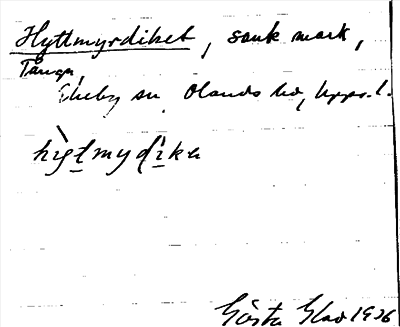 Hyttmyrdiket, sank mark,
Tånga,
Ekeby sn, Olands hd, Upps. l.
hỳtmydìkə
Gösta Elov 1936